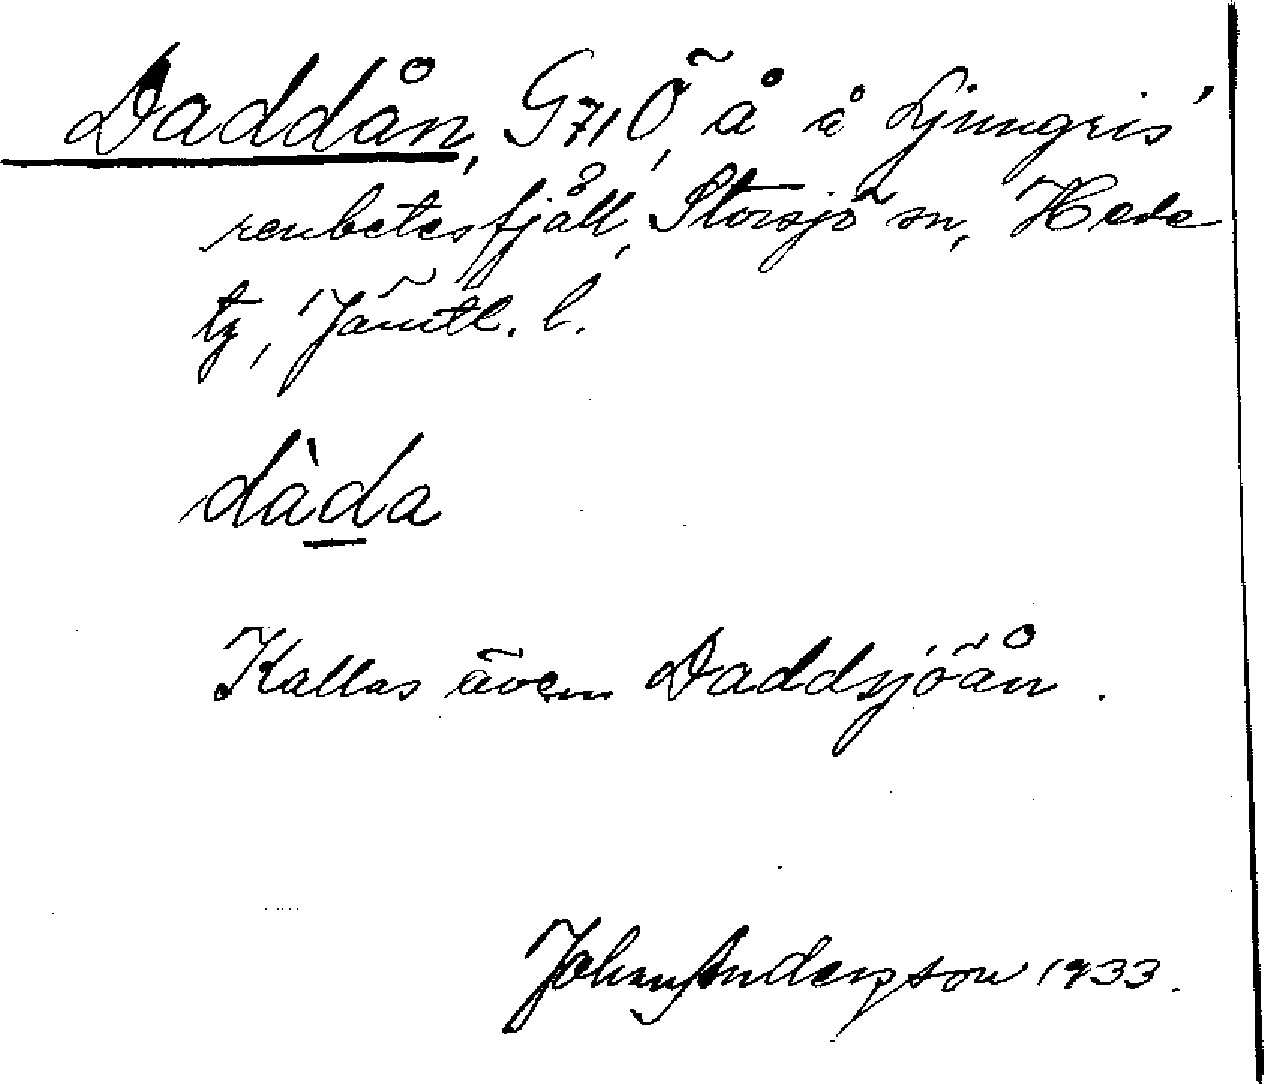 Daddån, G71Ö, å å Ljungris'
renbetesfjäll, Storsjö sn, Hede
tg, Jämtl. l.
dàda
Kallas även Daddsjöån.
Johan Andersson 1933.